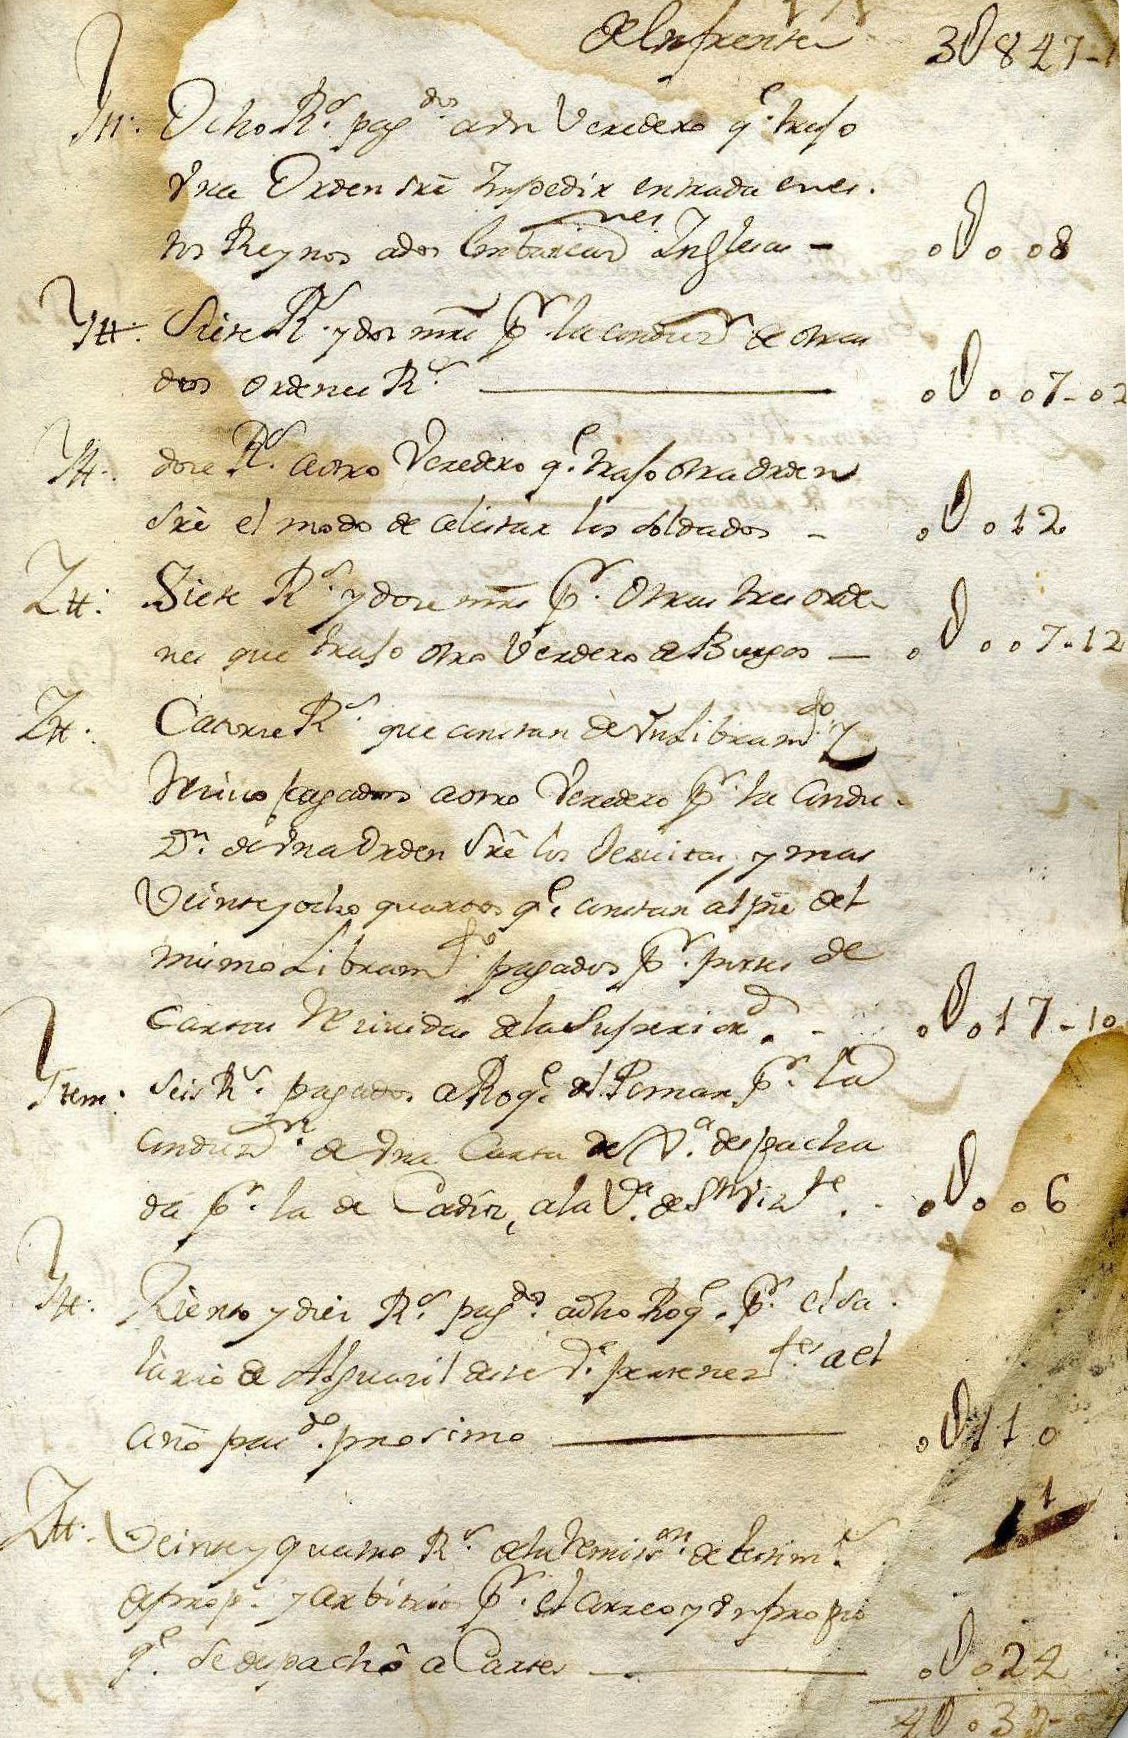 De la frente 3U847-1
Itt. Ocho Rs. pagdos. a un Veredero qe. trajo
vna Orden sre Impedir entrada en es-
tos Reynos a dos Embarcaznes Inglesas - oU008
Itt. Siete Rs. y dos mrs pr. la conduzn. de otras
dos ordenes Rs. oU007-02
Itt. doze Rs. a otro Veredero qe. trajo otra orden
sre el modo de alistar los soldados - oU012
Itt. Siete Rs. y doze mrs pr. Otras tres orde-
nes que trajo otro Verdero de Burgos - oU007-12
Itt. Catorze Rs. que constan de vn Libramto. I
Reciuo pagados a otro Veredero pr. la Condu-
zn. de vna Orden sre los Jesuitas, y mas
Veinte y ocho quartos qe. constan al pie del
mismo Libramto. pagados pr. portes de
Cartas Reciuidas de la Superiord. - oU017-10
Ittem. Seis Rs. pagados a Roqe. del Pomar pr. la
conduzn. de vna Carta de Va. despacha
da pr. la de Cadiz, a la Va. de Sn Vizte. - oU006
Itt. Ziento y diez Rs. pagdos. a dho Roqe. pr. el sa-
lario de Alguazil de este Va. perteneztes. a el
año pasdo. proximo oU110
1
Itt. Veinte y quatro Rs. de la Remisson. de testimo.
de props. y arbitrios pr. el correo y vn propio
qe. se despachô a Cartes oU024
4U03